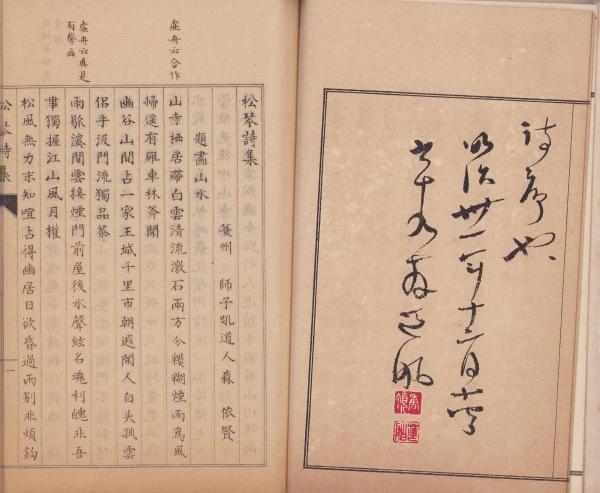 詩序也
明治卅一年十二月
虛舟云合作
虛舟云真是
有聲畫
松琴詩集
題畫山水　州　師子吼道人森　依賢
山寺栖居帶白雲清流激石兩方分糢糊煙雨寫風
遙有羅車林斧聞
幽谷山間占一家王城千里市朝遐閒人自失孤雲
侶手汲門流獨品茶
雨歇溪間雲接煙門前屋後水聲絃名魂利魄非吾
事獨握江山風月權
松風無力未知喧占得幽居日欲昏過雨別非煩鈞
松琴詩集
一